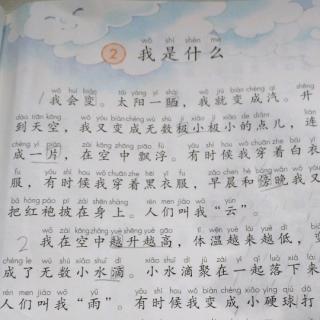 wǒ shì shén me
2 我是什么
wǒ huì biàn tài yáng yí shài wǒ jiù biàn chéng qì
1 我会变。太阳一晒，我就变成汽。升
dào tiān kōng wǒ yòu biàn chéng wú shù jí xiǎo jí xiǎo de diǎnr
到天空，我又变成无数极小极小的点儿，连
chéng yí piàn zài kōng zhōng piāo fú yǒu shí hou wǒ chuān zhe bái
成一片，在空中飘浮。有时候我穿着白衣
fú yǒu shí hou wǒ chuān zhe hēi yī fú zǎo chén hé bàng wǎn wǒ yòu
服，有时候我穿着黑衣服，早晨和傍晚我又
bǎ hóng páo pī zài shēn shang rén men jiào wǒ yún
把红袍披在身上。人们叫我“云”。
wǒ zài kōng zhōng yuè shēng yuè gāo tǐ wēn yuè lái yuè dī biàn
2 我在空中越升越高，体温越来越低，变
chéng le wú shù xiǎo shuǐ dī xiǎo shuǐ dī jù zài yì qǐ luò xià lái
成了无数小水滴。小水滴聚在一起落下来
rén men jiào wǒ yǔ yǒu shí hou wǒ biàn chéng xiǎo yìng qiú dǎ
人们叫我“雨”。有时候我变成小硬球打